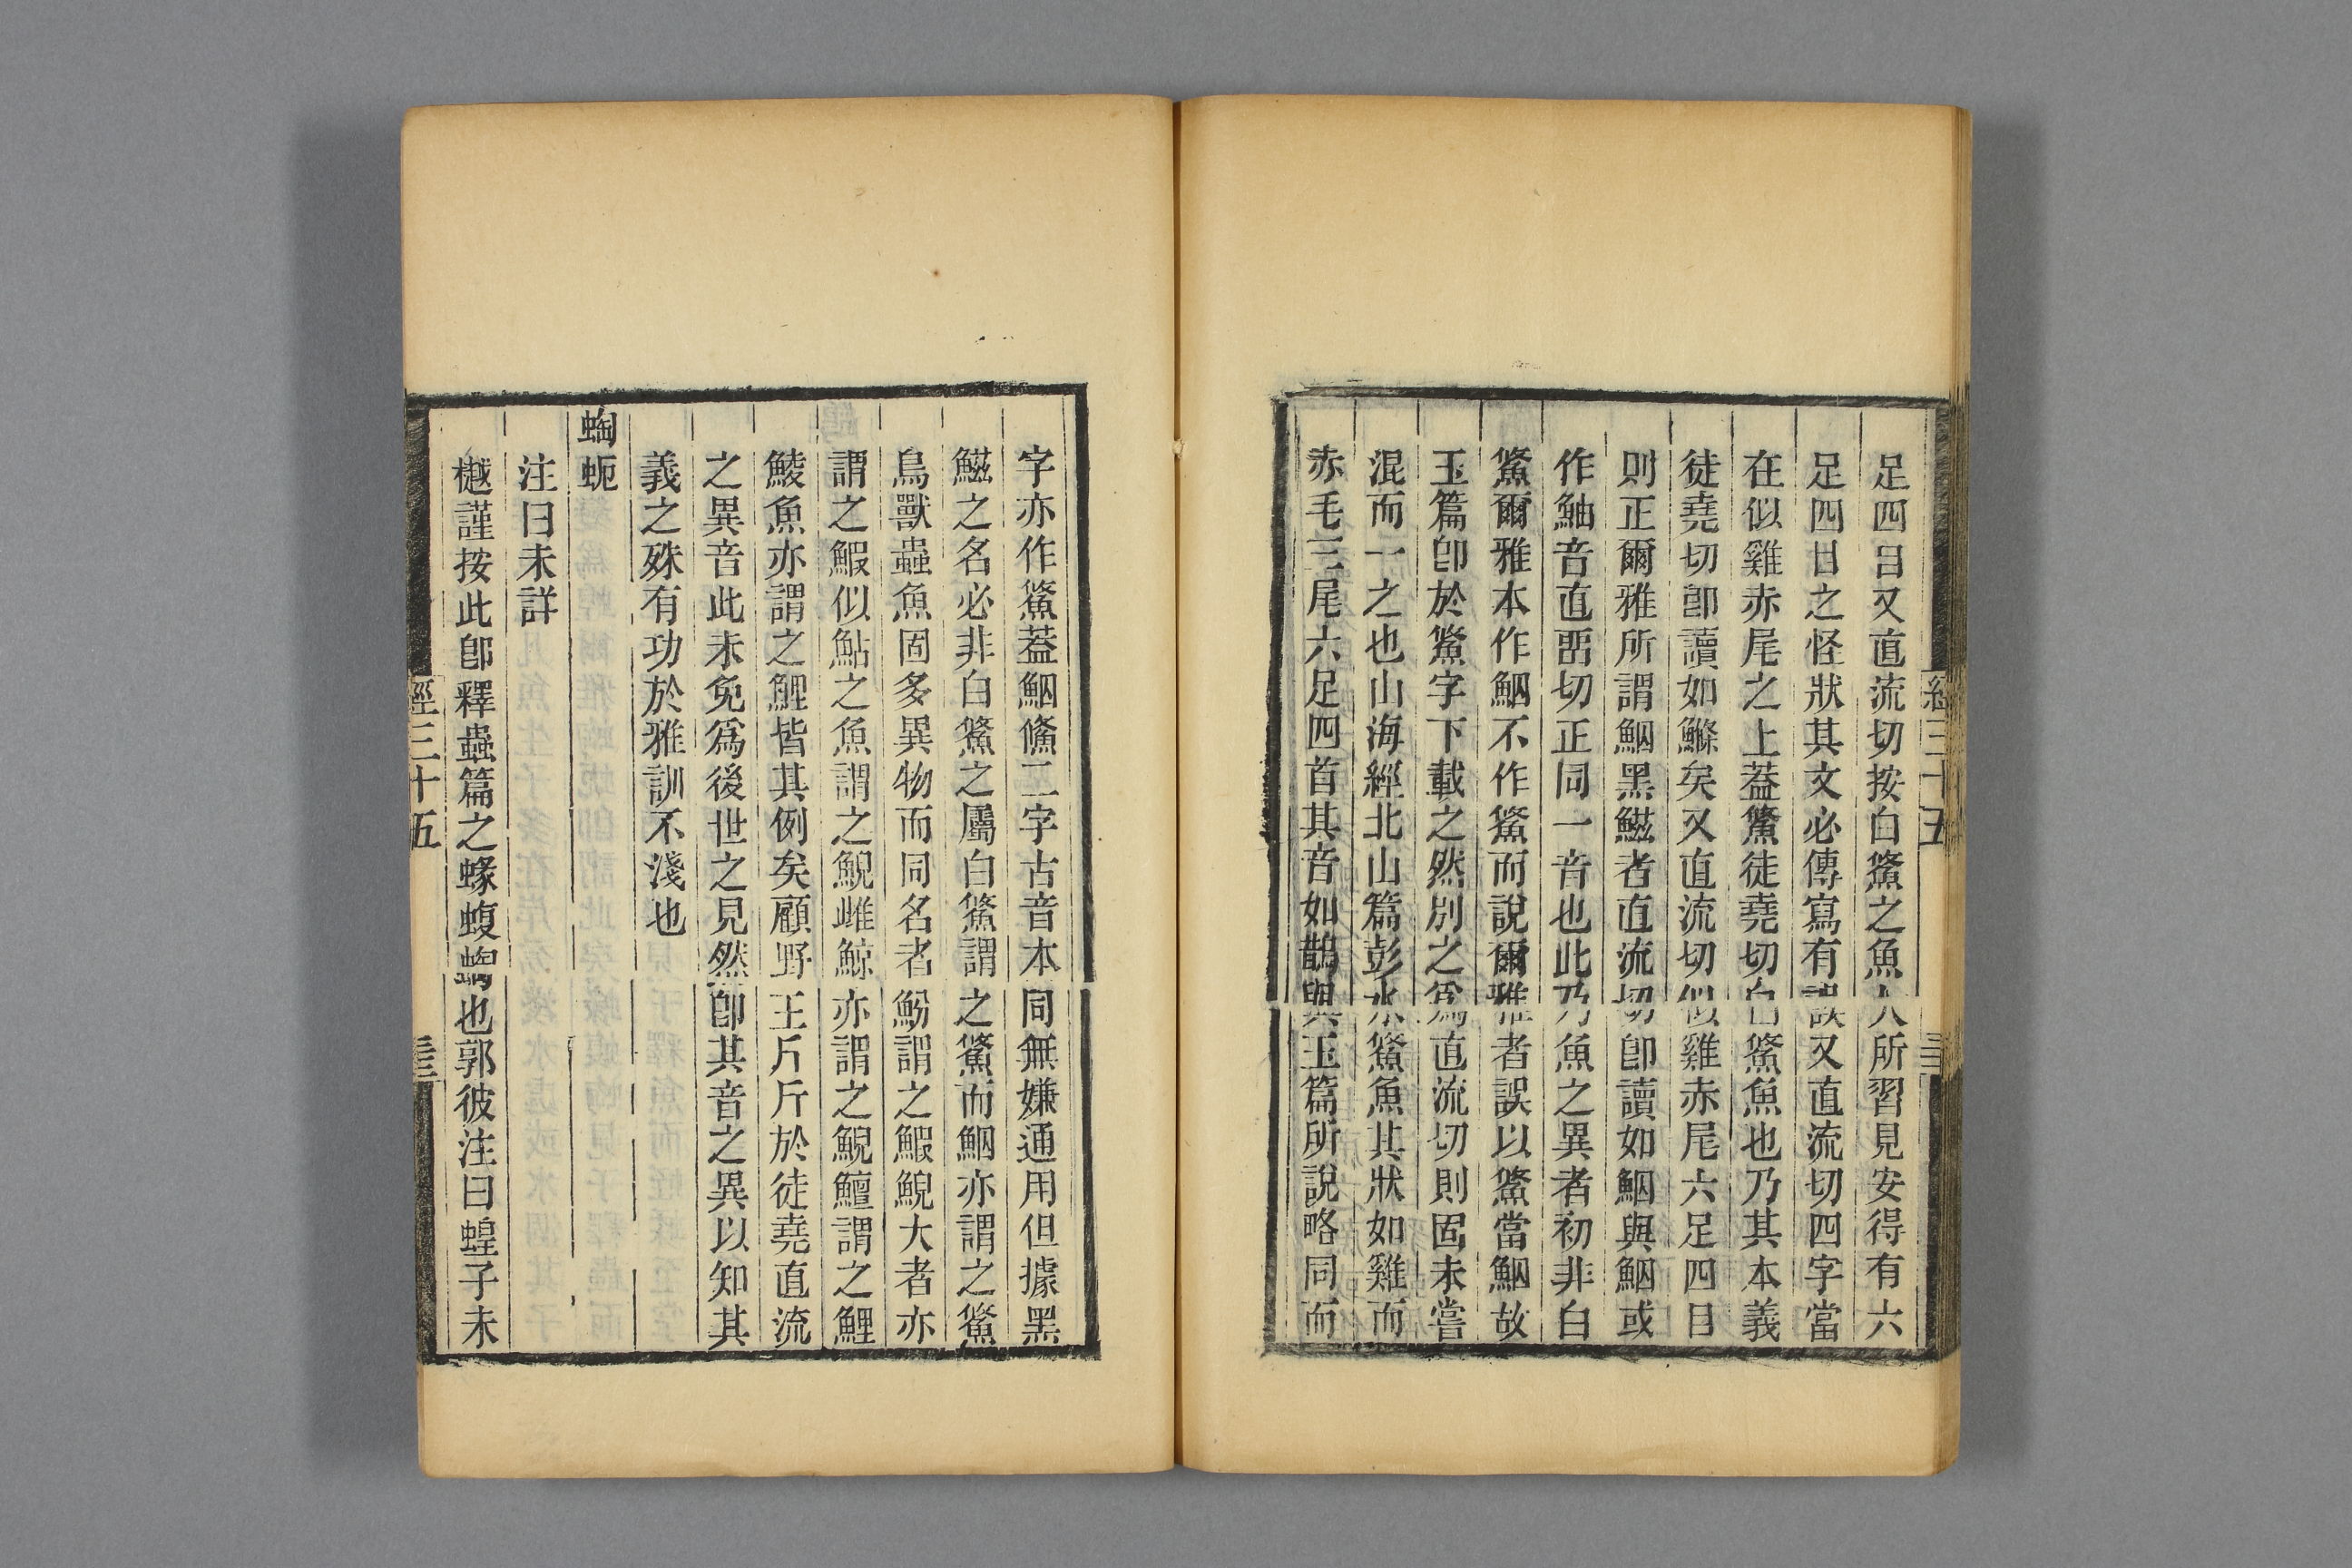 足四目又直流切按白鯈之魚人所習見安得有六
足四目之怪狀其文必傳寫有誤又直流切四字當
在似雞赤尾之上蓋鮆徒堯切白鮆魚也乃其本義
徒堯切卽讀如鰷矣又直流切似雞赤尾六足四目
則正爾雅所謂鮂黑鰦者直流切卽讀如鮂與鮂或
作鮋音直畱切正同一音也此乃魚之異者初非白
鯈爾雅本作鮂不作鯈而說爾雅者誤以鯈當鮂故
玉篇卽於鯈字下載之然別之爲直流切則固未嘗
混而一之也山海經北山篇彭水鯈魚其狀如雞而
赤毛三尾六足四首其音如鵲與玉篇所說略同而
經三十五
字亦作鯈蓋鮂鯈二字古音本同無嫌通用但據黑
鰦之名必非白鯈之屬白鯈謂之鯈而鮂亦謂之鯈
鳥獸蟲魚固多異物而同名者魵謂之鰕鯢大者亦
謂之鰕似鮎之魚謂之鯢雌鯨亦謂之鯢鱣謂之鯉
鯪魚亦謂之鯉皆其例矣顧野王斤斤於徒堯直流
之異音此未免爲後世之見然卽其音之異以知其
義之殊有功於雅訓不淺也
蜪蚅
注曰未詳
樾謹按此卽釋蟲篇之蝝蝮蜪也郭彼注曰蝗子未
經三十五